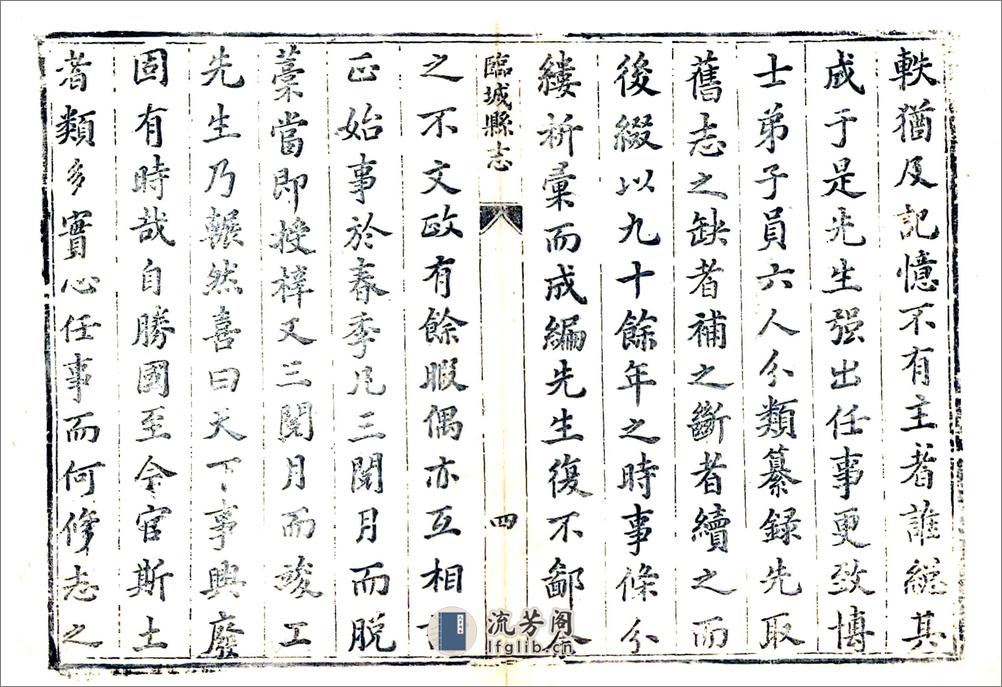 軼猶及記憶不有主者誰総其
成于是先生强出任事更致博
士弟子員六人分類纂録先取
舊志之缺者補之斷者續之而
後綴以九十餘年之時事條分
縷析彙而成編先生復不鄙
臨城縣志
四
之不文政有餘暇偶亦互相
正始事於春季凡三閱月而脱
藁當即授梓又三閱月而竣工
先生乃輾然喜曰天下事興廢
固有時哉自勝國至今官斯土
者類多實心任事而何修志之
流芳阁
lfglib.cn